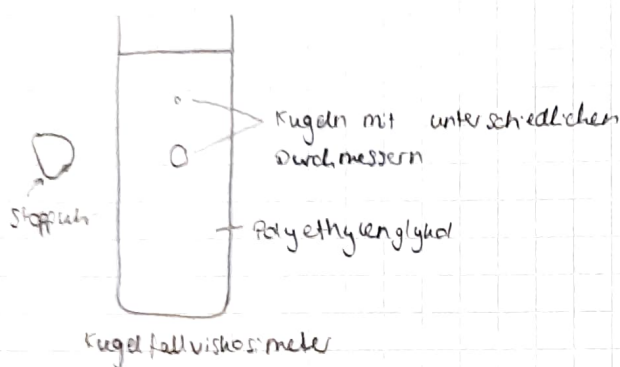 Kugeln mit unterschiedlichen
Durchmessern
Stoppuhr
Polyethylenglykol
Kugelfallviskosimeter